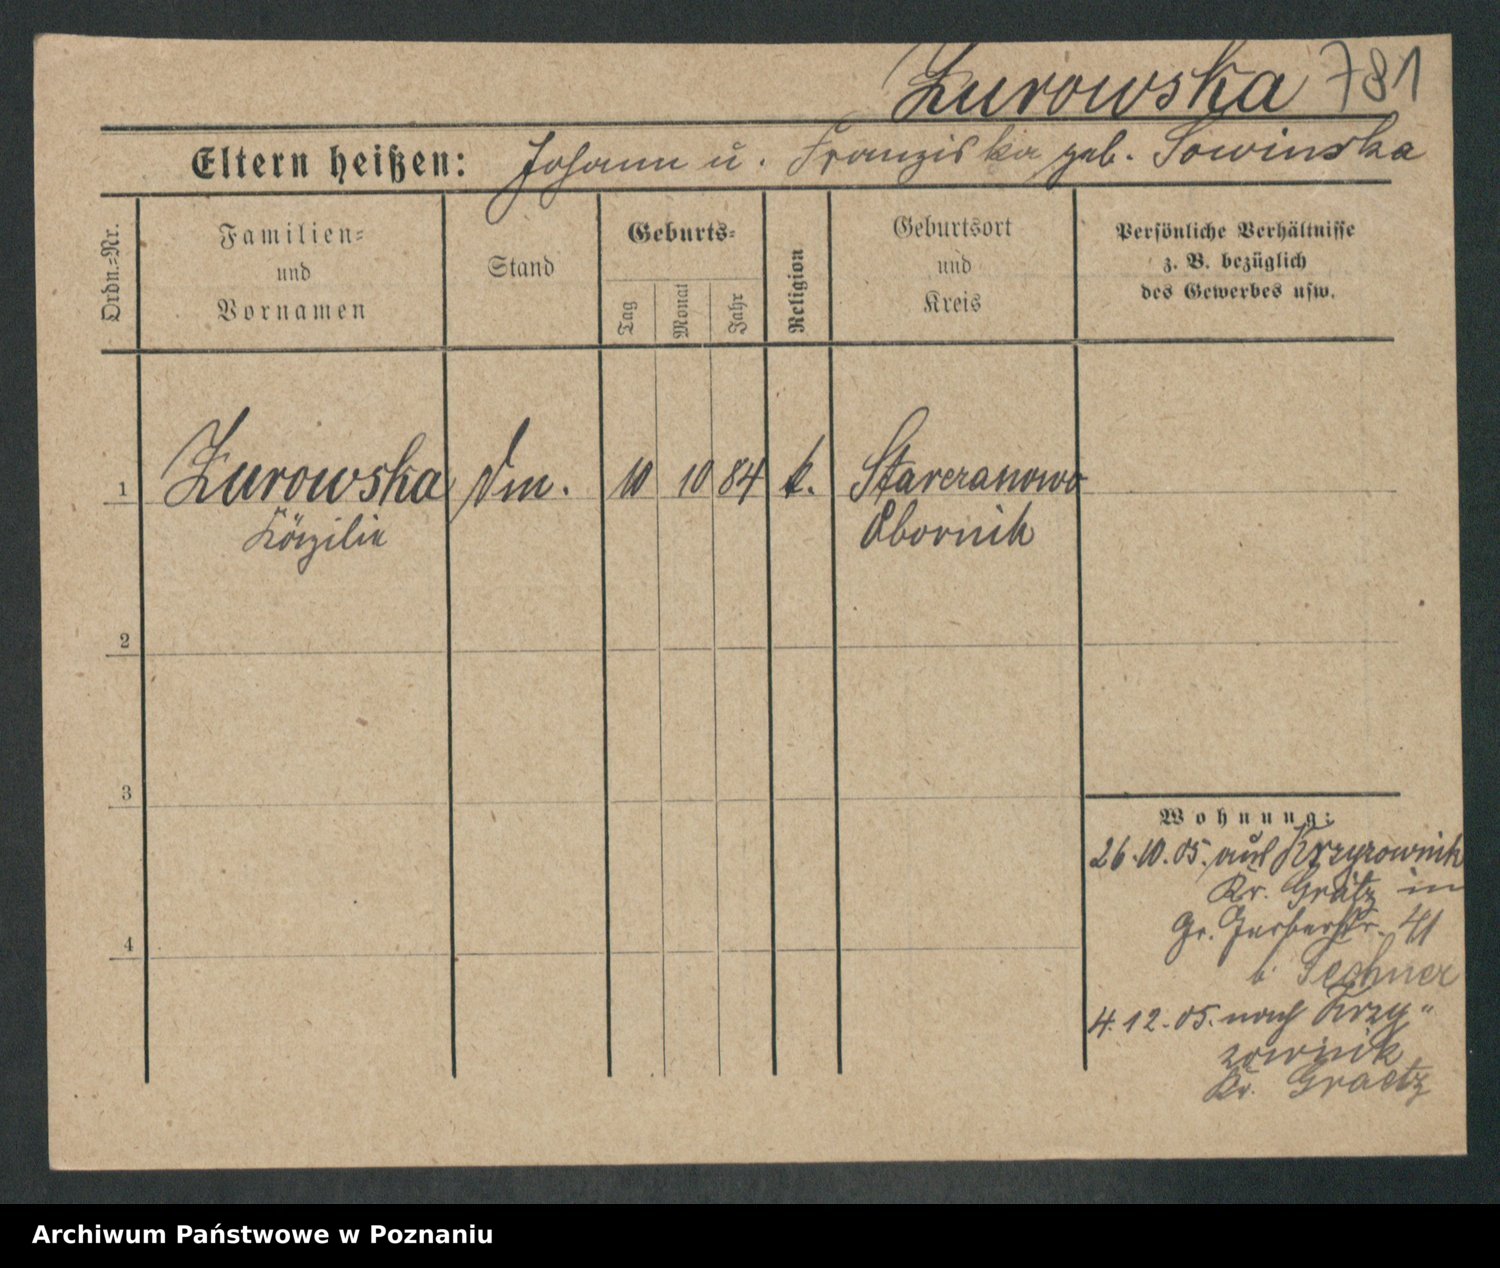 Zurowska 781
Eltern heißen: Johann u. Franziska geb. Sowinska
Ordn.=Nr.
Familien=
und
Vornamen
Stand
Geburts=
Tag
Monat
Jahr
Religion
Geburtsort
und
Kreis
Persönliche Verhältnisse
z. B. bezüglich
des Gewerbes usw.
1 Zurowska Dm. 10 10 84 k. Starczanowo
Käzilie Obornik
2
3
4
Wohnung:
26.10.05. aus Krzyzownik
Kr. Grätz in
Gr. Gerberstr. 41
b.
4.12.05. nach Krzy"
zownik
Kr. Graetz
Archiwum Państwowe w Poznaniu